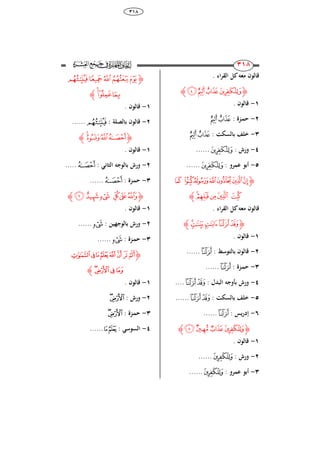 ٣١٨
٣١٨
قالون معه كل القراء .
﴿ وَلِلْكَٰفِرِينَ عَذَابٌ أَلِيمٌ ﴾
١- قالون .
٢- حمزة : عَذَابٌ أَلِيمٌ
٣- خلف بالسكت : عَذَابٌ أَلِيمٌ
٤- ورش : وَلِلْكَٰفِرِينَ ......
٥- أبو عمرو : وَلِلْكَٰفِرِينَ ......
﴿ إِنَّ ٱلَّذِينَ يُحَآدُّونَ ٱللَّهَ وَرَسُولَهُۥ كُبِتُوا۟ كَمَا كُبِتَ ٱلَّذِينَ مِن قَبْلِهِمْ ﴾
قالون معه كل القراء .
﴿ وَقَدْ أَنزَلْنَآ ءَايَٰتٍۭ بَيِّنَٰتٍ ﴾
١- قالون .
٢- قالون بالتوسط : أَنزَلْنَآ ......
٣- حمزة : أَنزَلْنَآ ......
٤- ورش بأوجه البدل : وَقَدْ أَنزَلْنَآ ....
٥- خلف بالسكت : وَقَدْ أَنزَلْنَآ ......
٦- إدريس : أَنزَلْنَآ ......
﴿ وَلِلْكَٰفِرِينَ عَذَابٌ مُّهِينٌ ﴾
١- قالون .
٢- ورش : وَلِلْكَٰفِرِينَ ......
٣- أبو عمرو : وَلِلْكَٰفِرِينَ ......
﴿ يَوْمَ يَبْعَثُهُمُ ٱللَّهُ جَمِيعًا فَيُنَبِّئُهُم بِمَا عَمِلُوٓا۟ ﴾
١- قالون .
٢- قالون بالصلة : فَيُنَبِّئُهُم ......
﴿ أَحْصَىٰهُ ٱللَّهُ وَنَسُوهُ ﴾
١- قالون .
٢- ورش بالوجه الثاني : أَحْصَىٰهُ .....
٣- حمزة : أَحْصَىٰهُ ......
﴿ وَٱللَّهُ عَلَىٰ كُلِّ شَىْءٍ شَهِيدٌ ﴾
١- قالون .
٢- ورش بالوجهين : شَىْءٍ ......
٣- حمزة : شَىْءٍ ......
﴿ أَلَمْ تَرَ أَنَّ ٱللَّهَ يَعْلَمُ مَا فِى ٱلسَّمَٰوَٰتِ وَمَا فِى ٱلْأَرْضِ ﴾
١- قالون .
٢- ورش : ٱلْأَرْضِ
٣- حمزة : ٱلْأَرْضِ
٤- السوسي : يَعْلَم مَّا ......